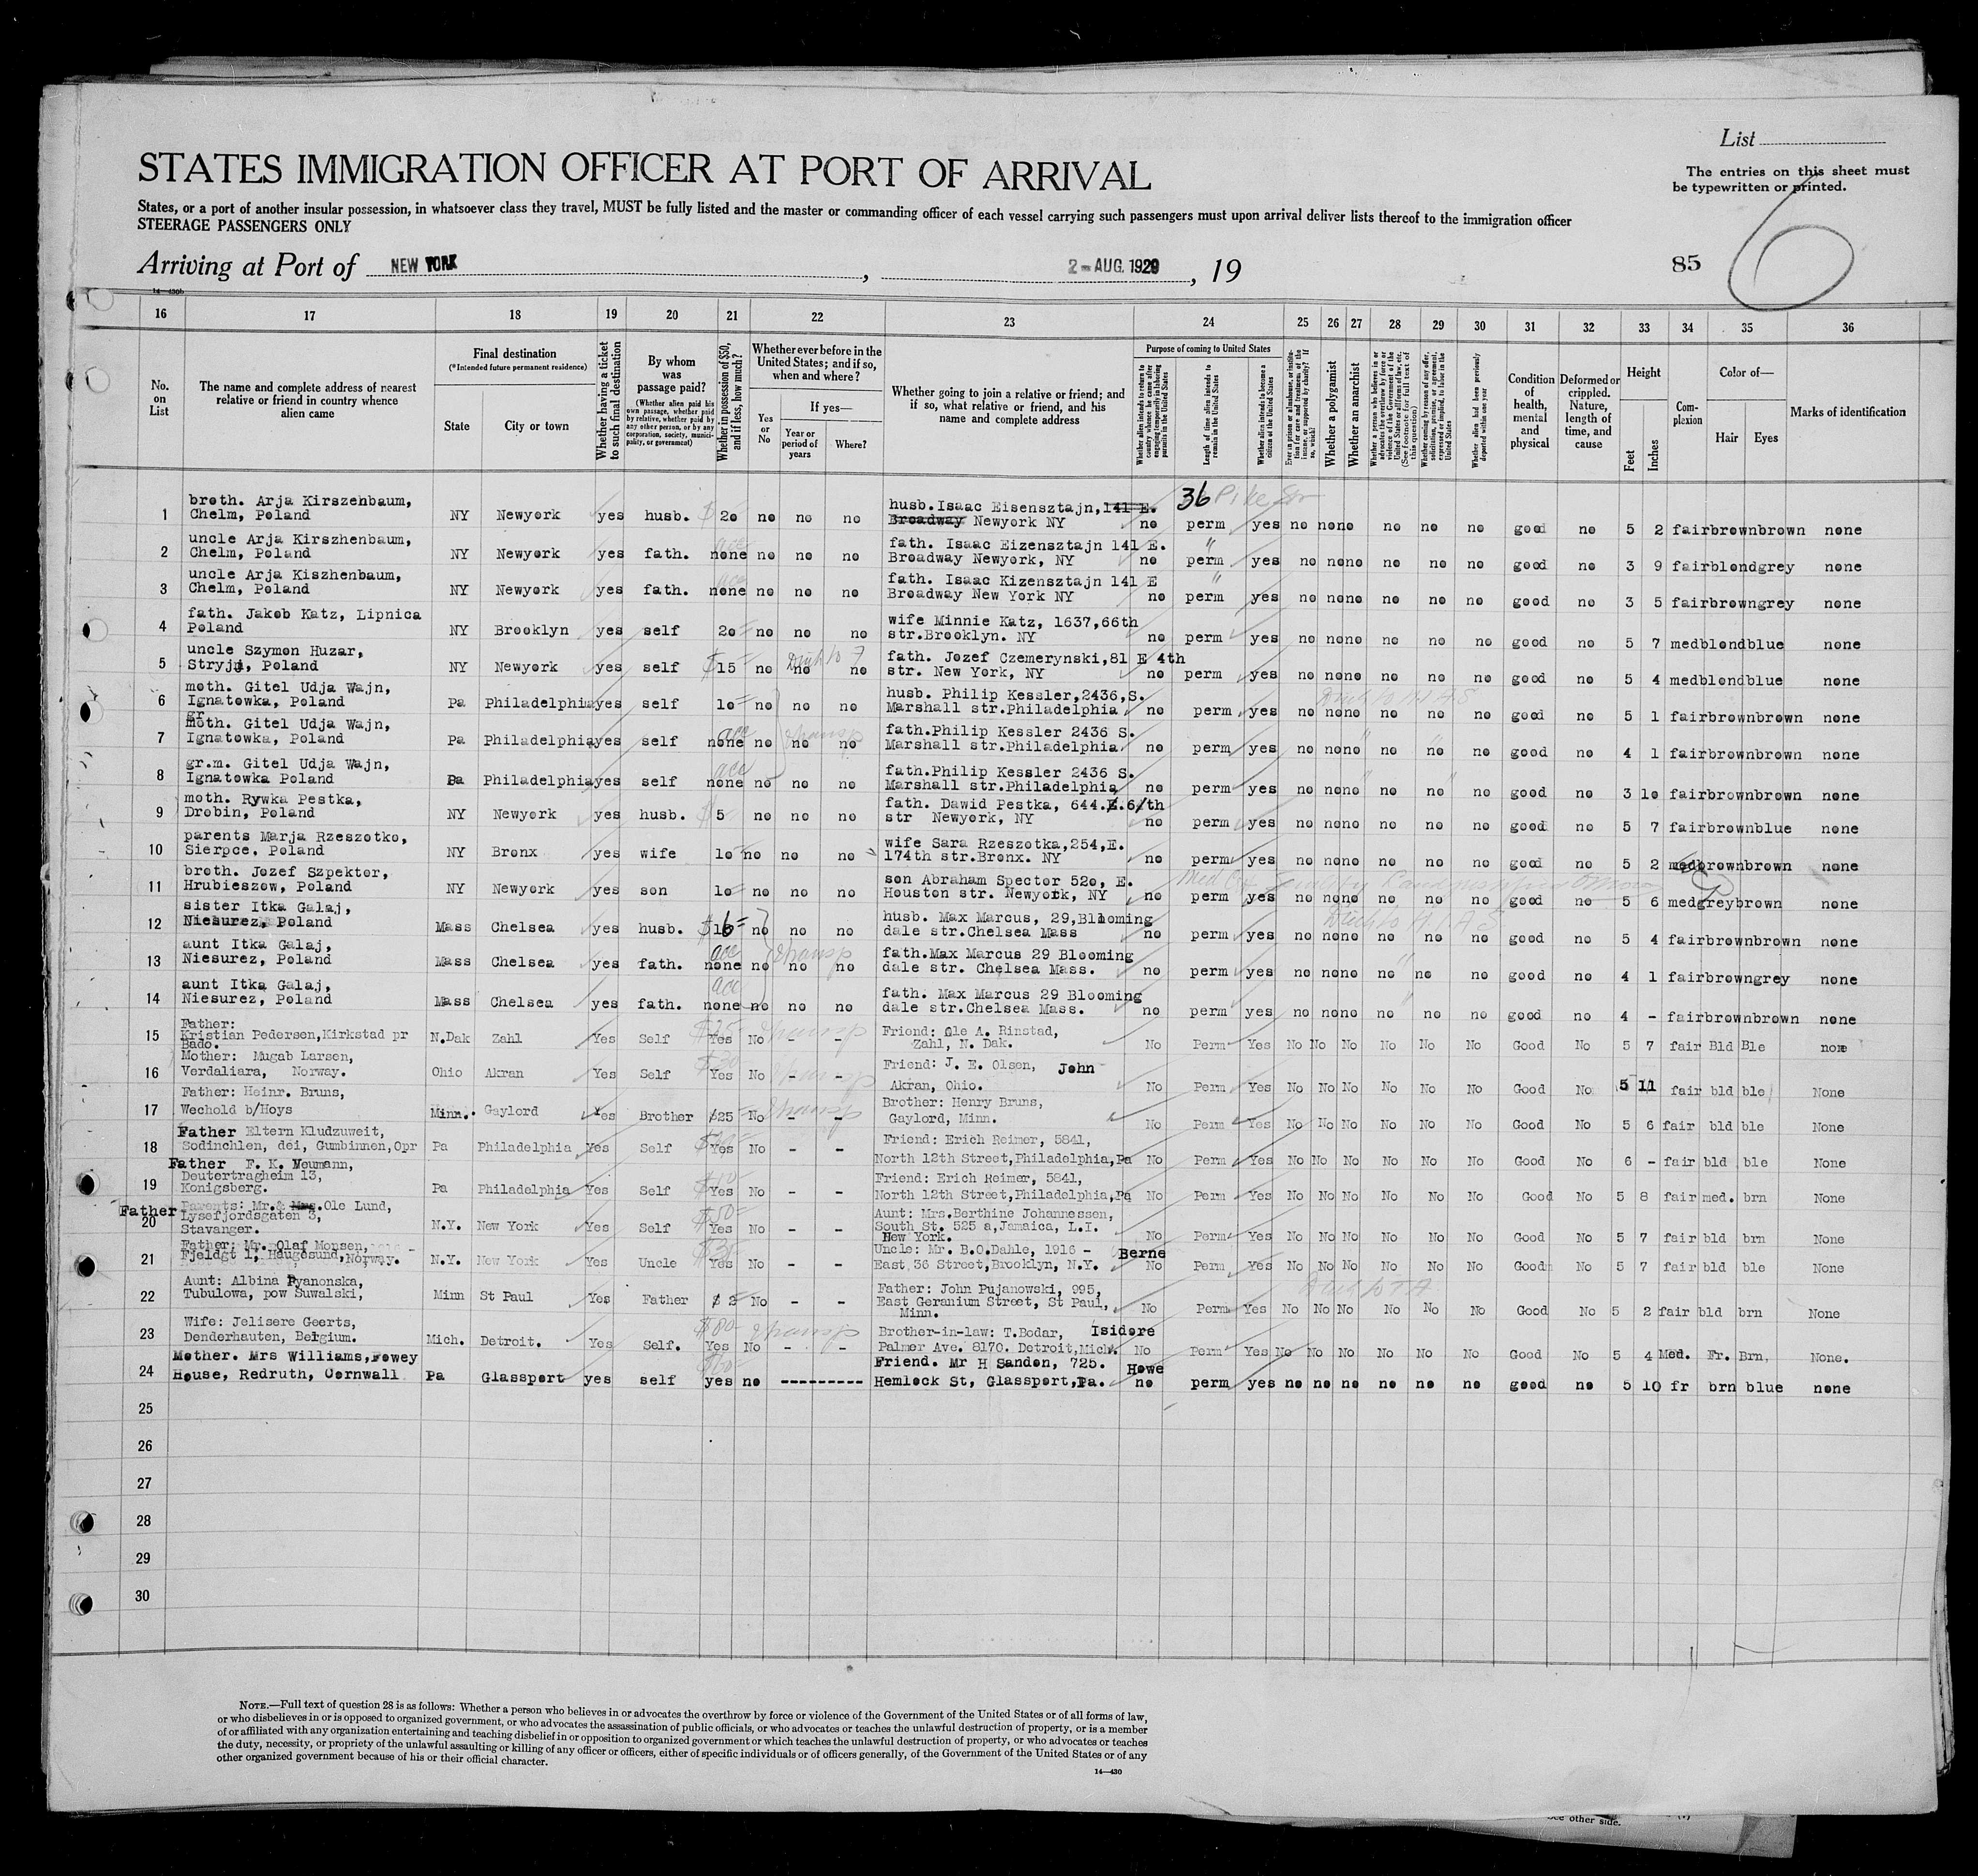 List
STATES IMMIGRATION OFFICER AT PORT OF ARRIVAL
The entries on this sheet must
be typewritten or printed.
States, or a port of another insular possession, in whatsoever class they travel, MUST be fully listed and the master or commanding officer of each vessel carrying such passengers must upon arrival deliver lists thereof to the immigration officer
STEERAGE PASSENGERS ONLY
6
Arriving at Port of NEW YORK, 2- AUG. 1929, 19
85
14—430b
16 17 18 19 20 21 22 23 24 25 26 27 28 29 30 31 32 33 34 35 36
No. on List
The name and complete address of nearest relative or friend in country whence alien came
Final destination
(*Intended future permanent residence)
State
City or town
Whether having a ticket to such final destination
By whom was passage paid?
(Whether alien paid his own passage, whether paid by relative, whether paid by any other person, or by any corporation, society, municipality, or government)
Whether in possession of $50, and if less, how much?
Whether ever before in the United States; and if so, when and where?
Yes or No
If yes—
Year or period of years
Where?
Whether going to join a relative or friend; and if so, what relative or friend, and his name and complete address
Purpose of coming to United States
Whether alien intends to return to country whence he came after engaging temporarily in laboring pursuits in the United States
Length of time alien intends to remain in the United States
Whether alien intends to become a citizen of the United States
Ever in prison or almshouse, or institution for care and treatment of the insane, or supported by charity? If so, which?
Whether a polygamist
Whether an anarchist
Whether a person who believes in or advocates the overthrow by force or violence of the Government of the United States or all forms of law, etc. (See footnote for full text of this question)
Whether coming by reason of any offer, solicitation, promise, or agreement, expressed or implied, to labor in the United States
Whether alien had been previously deported within one year
Condition of health, mental and physical
Deformed or crippled. Nature, length of time, and cause
Height
Feet
Inches
Complexion
Color of—
Hair
Eyes
Marks of identification
36 Pike Str
1 broth. Arja Kirszenbaum, husb. Isaac Eisensztajn, 141 E.
Chelm, Poland NY Newyork yes husb. $ 20 no no no Broadway Newyork NY no perm yes no none no no no good no 5 2 fair brown brown none
2 uncle Arja Kirszhenbaum, father. Isaac Eizensztajn 141 E.
Chelm, Poland NY Newyork yes fath. none no no no Broadway Newyork, NY no perm yes no none no no no good no 3 9 fair blond grey none
3 uncle Arja Kiszhenbaum, fath. Isaac Kizensztajn 141 E
Chelm, Poland NY Newyork yes fath. none no no no Broadway New York NY no perm yes no none no no no good no 3 5 fair brown grey none
4 fath. Jakob Katz, Lipnica wife Minnie Katz, 1637,66th
Poland NY Brooklyn yes self 20 no no no str.Brooklyn. NY no perm yes no none no no no good no 5 7 med blond blue none
5 uncle Szymon Huzar, fath. Jozef Czemerynski,81 E 4th
Stryju, Poland NY Newyork yes self $15 no no no str. New York, NY no perm yes no none no no no good no 5 4 med blond blue none
6 moth. Gitel Udja Wajn, husb. Philip Kessler,2436,S.
Ignatowka, Poland Pa Philadelphia yes self 10 no no no Marshall str.Philadelphia no perm yes no none no no no good no 5 1 fair brown brown none
7 gr moth. Gitel Udja Wajn, fath.Philip Kessler 2436 S.
Ignatowka, Poland Pa Philadelphia yes self none no no no Marshall str.Philadelphia. no perm yes no none no no no good no 4 1 fair brown brown none
8 gr.m. Gitel Udja Wajn, fath.Philip Kessler 2436 S.
Ignatowka Poland Pa Philadelphia yes self none no no no Marshall str.Philadelphia no perm yes no none no no no good no 3 10 fair brown brown none
9 moth. Rywka Pestka, fath. Dawid Pestka, 644.E.6/th
Drobin, Poland NY Newyork yes husb. $ 5 no no no str Newyork, NY no perm yes no none no no no good no 5 7 fair brown blue none
10 parents Marja Rzeszotko, wife Sara Rzeszotka,254,E.
Sierpce, Poland NY Bronx yes wife 10 no no no 174th str.Bronx. NY no perm yes no none no no no good no 5 2 med brown brown none
11 broth. Jozef Szpektor, son Abraham Spector 520, E.
Hrubieszow, Poland NY Newyork yes son 10 no no no Houston str. Newyork, NY no perm yes no none no no no good no 5 6 med grey brown none
12 sister Itka Galaj, husb. Max Marcus, 29,Blooming
Niesurez, Poland Mass Chelsea yes husb. $16 no no no dale str.Chelsea Mass no perm yes no none no no no good no 5 4 fair brown brown none
13 aunt Itka Galaj, fath.Max Marcus 29 Blooming
Niesurez, Poland Mass Chelsea yes fath. none no no no dale str. Chelsea Mass. no perm yes no none no no no good no 4 1 fair brown grey none
14 aunt Itka Galaj, fath. Max Marcus 29 Blooming
Niesurez, Poland Mass Chelsea yes fath. none no no no dale str.Chelsea Mass. no perm yes no none no no no good no 4 - fair brown brown none
15 Father:
Kristian Pedersen,Kirkstad pr Friend: Ole A. Rinstad,
Bado. N.Dak Zahl Yes Self Yes No - - Zahl, N. Dak. No Perm Yes No No No No No No Good No 5 7 fair Bld Ble none
16 Mother: Mugab Larsen, Friend: J. E. Olsen, John
Verdaliara, Norway. Ohio Akran Yes Self Yes No - - Akran, Ohio. No Perm Yes No No No No No No Good No 5 11 fair bld ble None
17 Father: Heinr. Bruns, Brother: Henry Bruns,
Wechold b/Hoys Minn. Gaylord Yes Brother $25 No - - Gaylord, Minn. No Perm Yes No No No No No No Good No 5 6 fair bld ble None
18 Father Eltern Kludzuweit, Friend: Erich Reimer, 5841,
Sodinchlen, dei, Gumbinnen,Opr Pa Philadelphia Yes Self Yes No - - North 12th Street,Philadelphia,Pa No Perm Yes No No No No No No Good No 6 - fair bld ble None
19 Father F. K. Neumann,
Deutertragheim 13, Friend: Erich Reimer, 5841,
Konigsberg. Pa Philadelphia Yes Self Yes No - - North 12th Street,Philadelphia,Pa No Perm Yes No No No No No No Good No 5 8 fair med. brn None
20 Father Parents: Mr.& Mrs.Ole Lund, Aunt: Mrs.Berthine Johannessen,
Lysefjordsgaten 3, South St. 525 a,Jamaica, L.I.
Stavanger. N.Y. New York Yes Self $50 Yes No - - New York. No Perm Yes No No No No No No Good No 5 7 fair bld brn None
21 Father: Mr. Olaf Monsen, Uncle: Mr. B.O.Dahle, 1916 - Berne
Fjeldgt 1, Haugesund,Norway. N.Y. New York Yes Uncle Yes No - - East 36 Street,Brooklyn, N.Y. No Perm Yes No No No No No No Good No 5 7 fair bld ble None
22 Aunt: Albina Pyanonska, Father: John Pujanowski, 995,
Tubulowa, pow Suwalski, Minn St Paul Yes Father $ 2 No - - East Geranium Street, St Paul,
Minn. No Perm Yes No No No No No No Good No 5 2 fair bld brn None
23 Wife: Jelisere Geerts, Brother-in-law: T.Bodar, Isidore
Denderhauten, Belgium. Mich. Detroit. Yes Self. Yes No - - Palmer Ave. 8170. Detroit,Mich. No Perm Yes No No No No No No Good No 5 4 Med. Fr. Brn. None.
24 Mother. Mrs Williams,Fowey Friend. Mr H Sandon, 725. Howe
House, Redruth, Cornwall Pa Glassport yes self yes no ---------- Hemlock St, Glassport,Pa. no perm yes no no no no no no good no 5 10 fr brn blue none
25
26
27
28
29
30
NOTE.—Full text of question 28 is as follows: Whether a person who believes in or advocates the overthrow by force or violence of the Government of the United States or of all forms of law,
or who disbelieves in or is opposed to organized government, or who advocates the assassination of public officials, or who advocates or teaches the unlawful destruction of property, or is a member
of or affiliated with any organization entertaining and teaching disbelief in or opposition to organized government or which teaches the unlawful destruction of property, or who advocates or teaches
the duty, necessity, or propriety of the unlawful assaulting or killing of any officer or officers, either of specific individuals or of officers generally, of the Government of the United States or of any
other organized government because of his or their official character.
14—430
See other side.